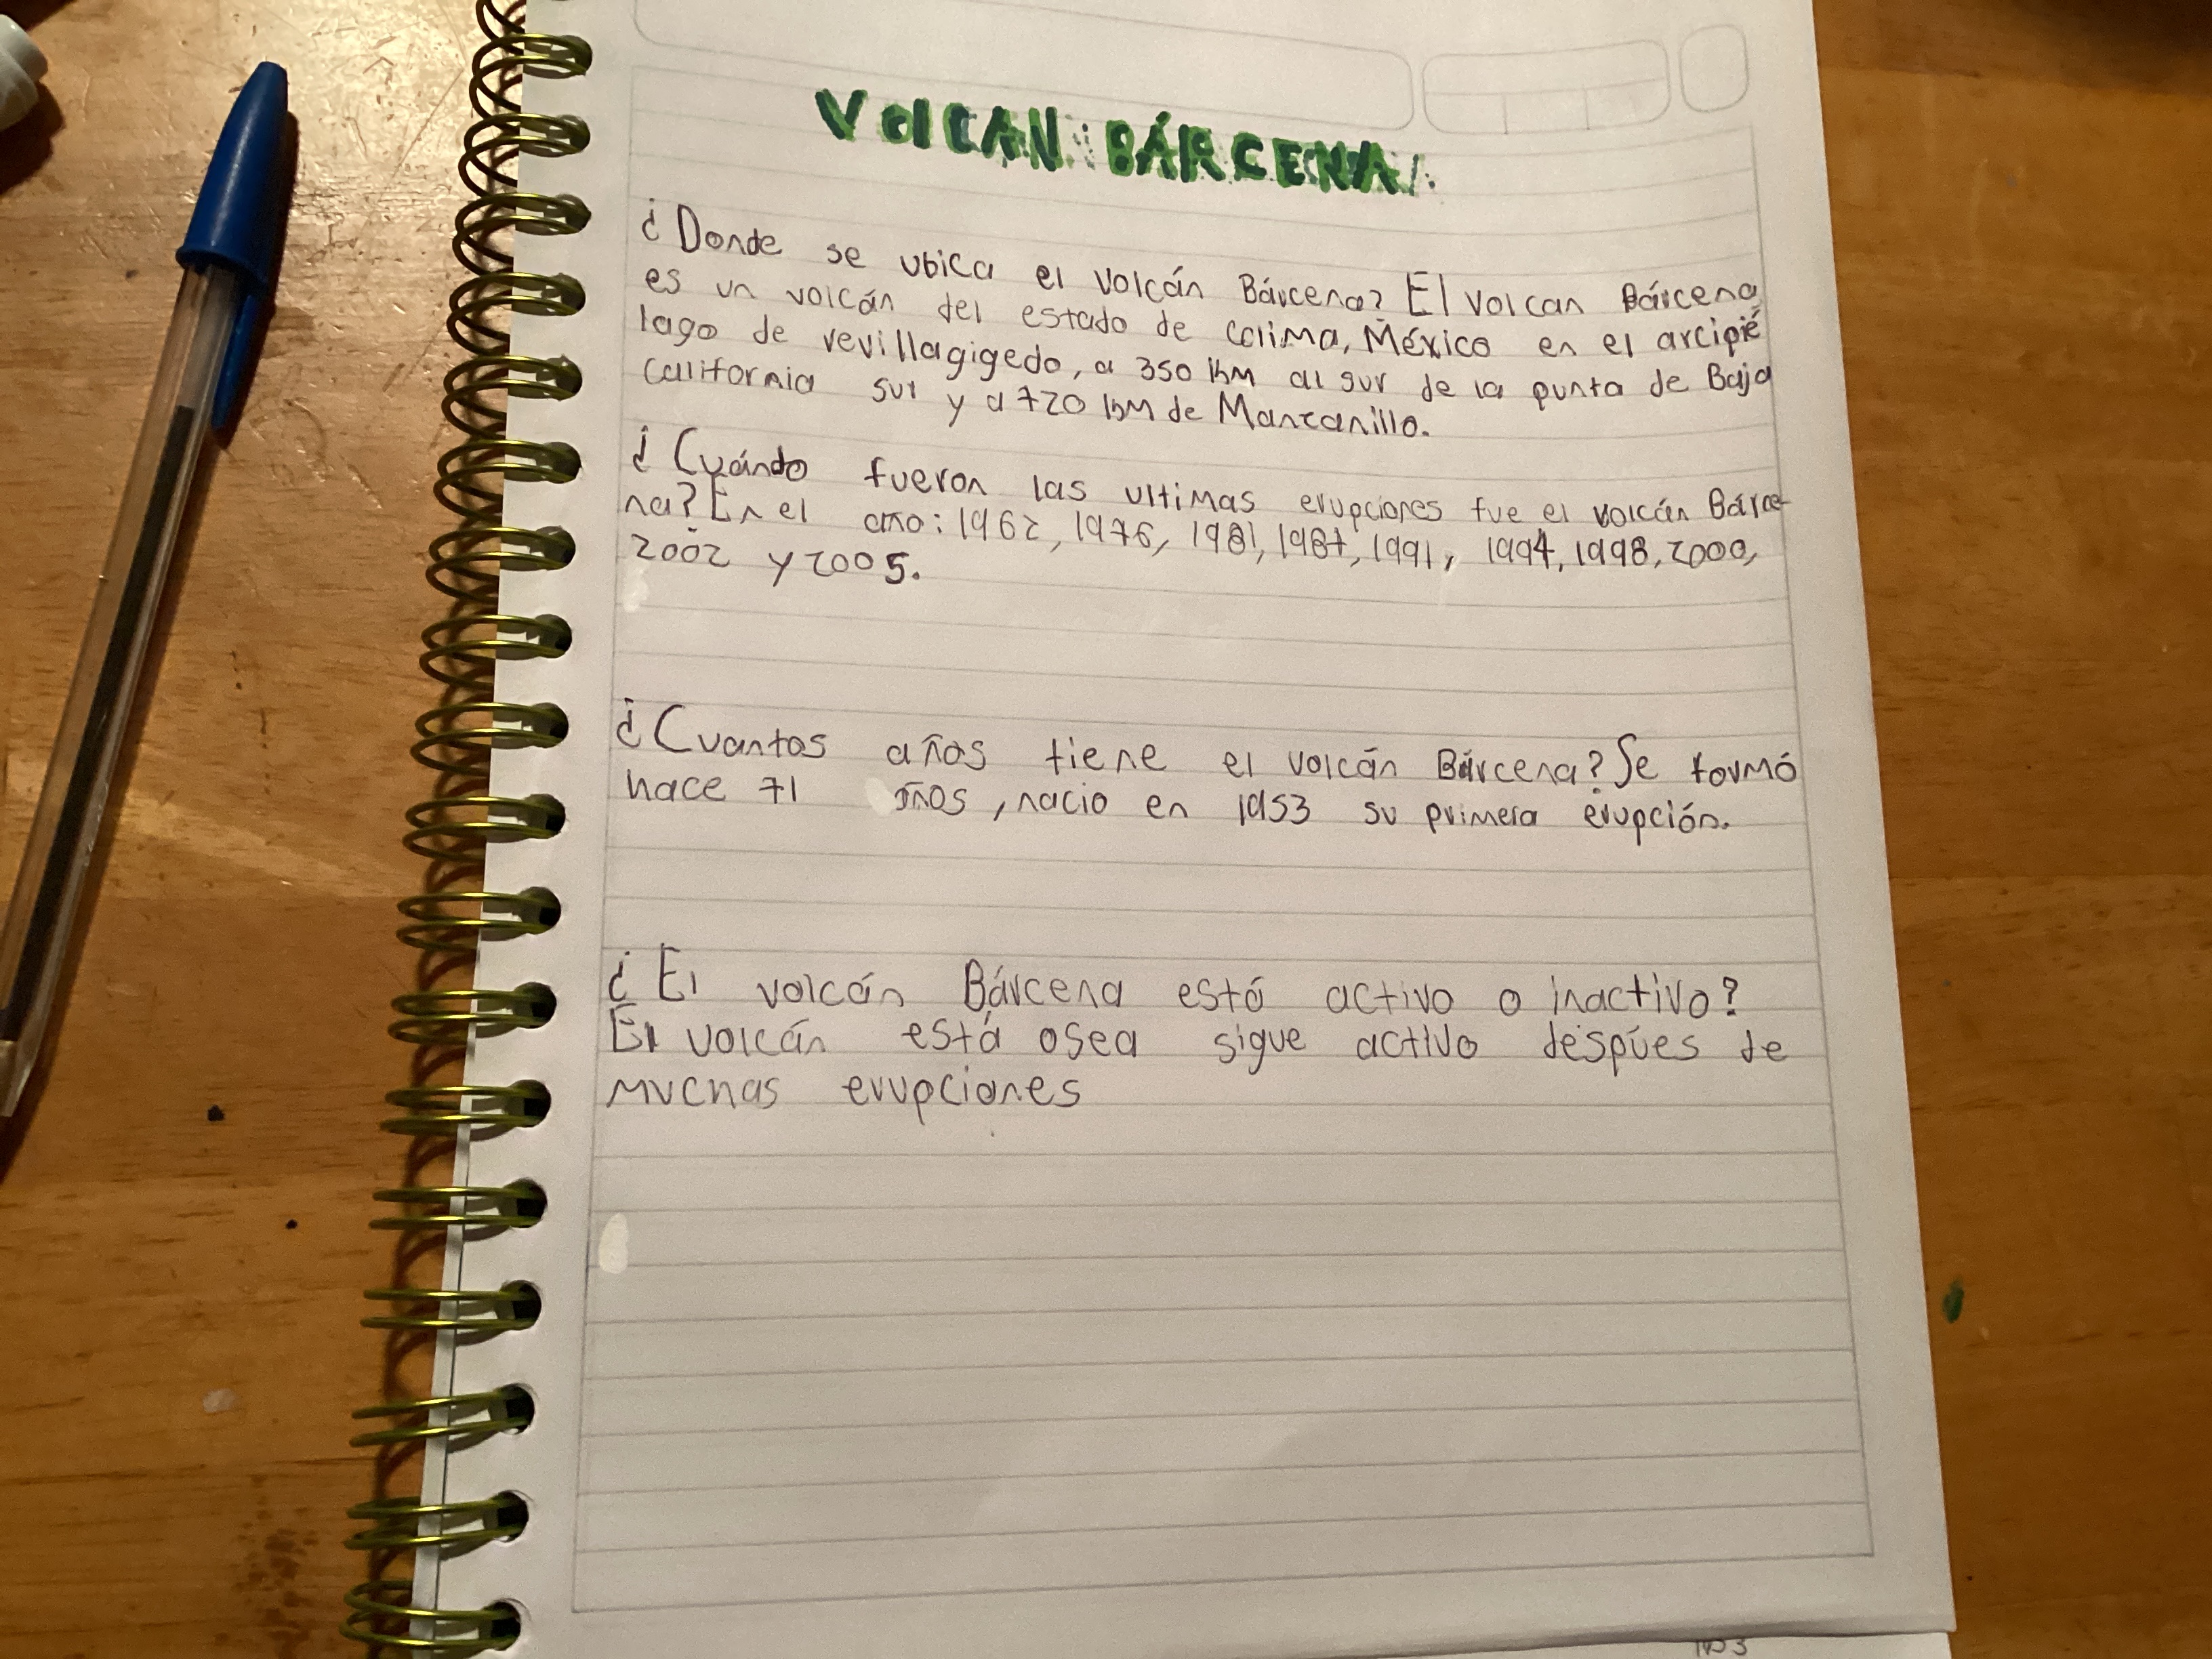 VOlCAN BÁRCENA
¿Donde se ubica el volcán Bárcena? El volcan Bárcena
es un volcán del estado de colima, México en el arcipié
lago de revillagigedo, a 350 km al sur de la punta de Baja
california sur y a 720 km de Manzanillo.
¿Cuándo fueron las ultimas erupciones fue el volcán Bárce-
na? En el año: 1962, 1976, 1981, 1987, 1991, 1994, 1998, 2000,
2002 y 2005.
¿Cuantos años tiene el volcán Bárcena? Se formó
hace 71 años, nacio en 1953 su primera erupción.
¿El volcán Bárcena está activo o inactivo?
El volcán está osea sigue activo despúes de
muchas erupciones